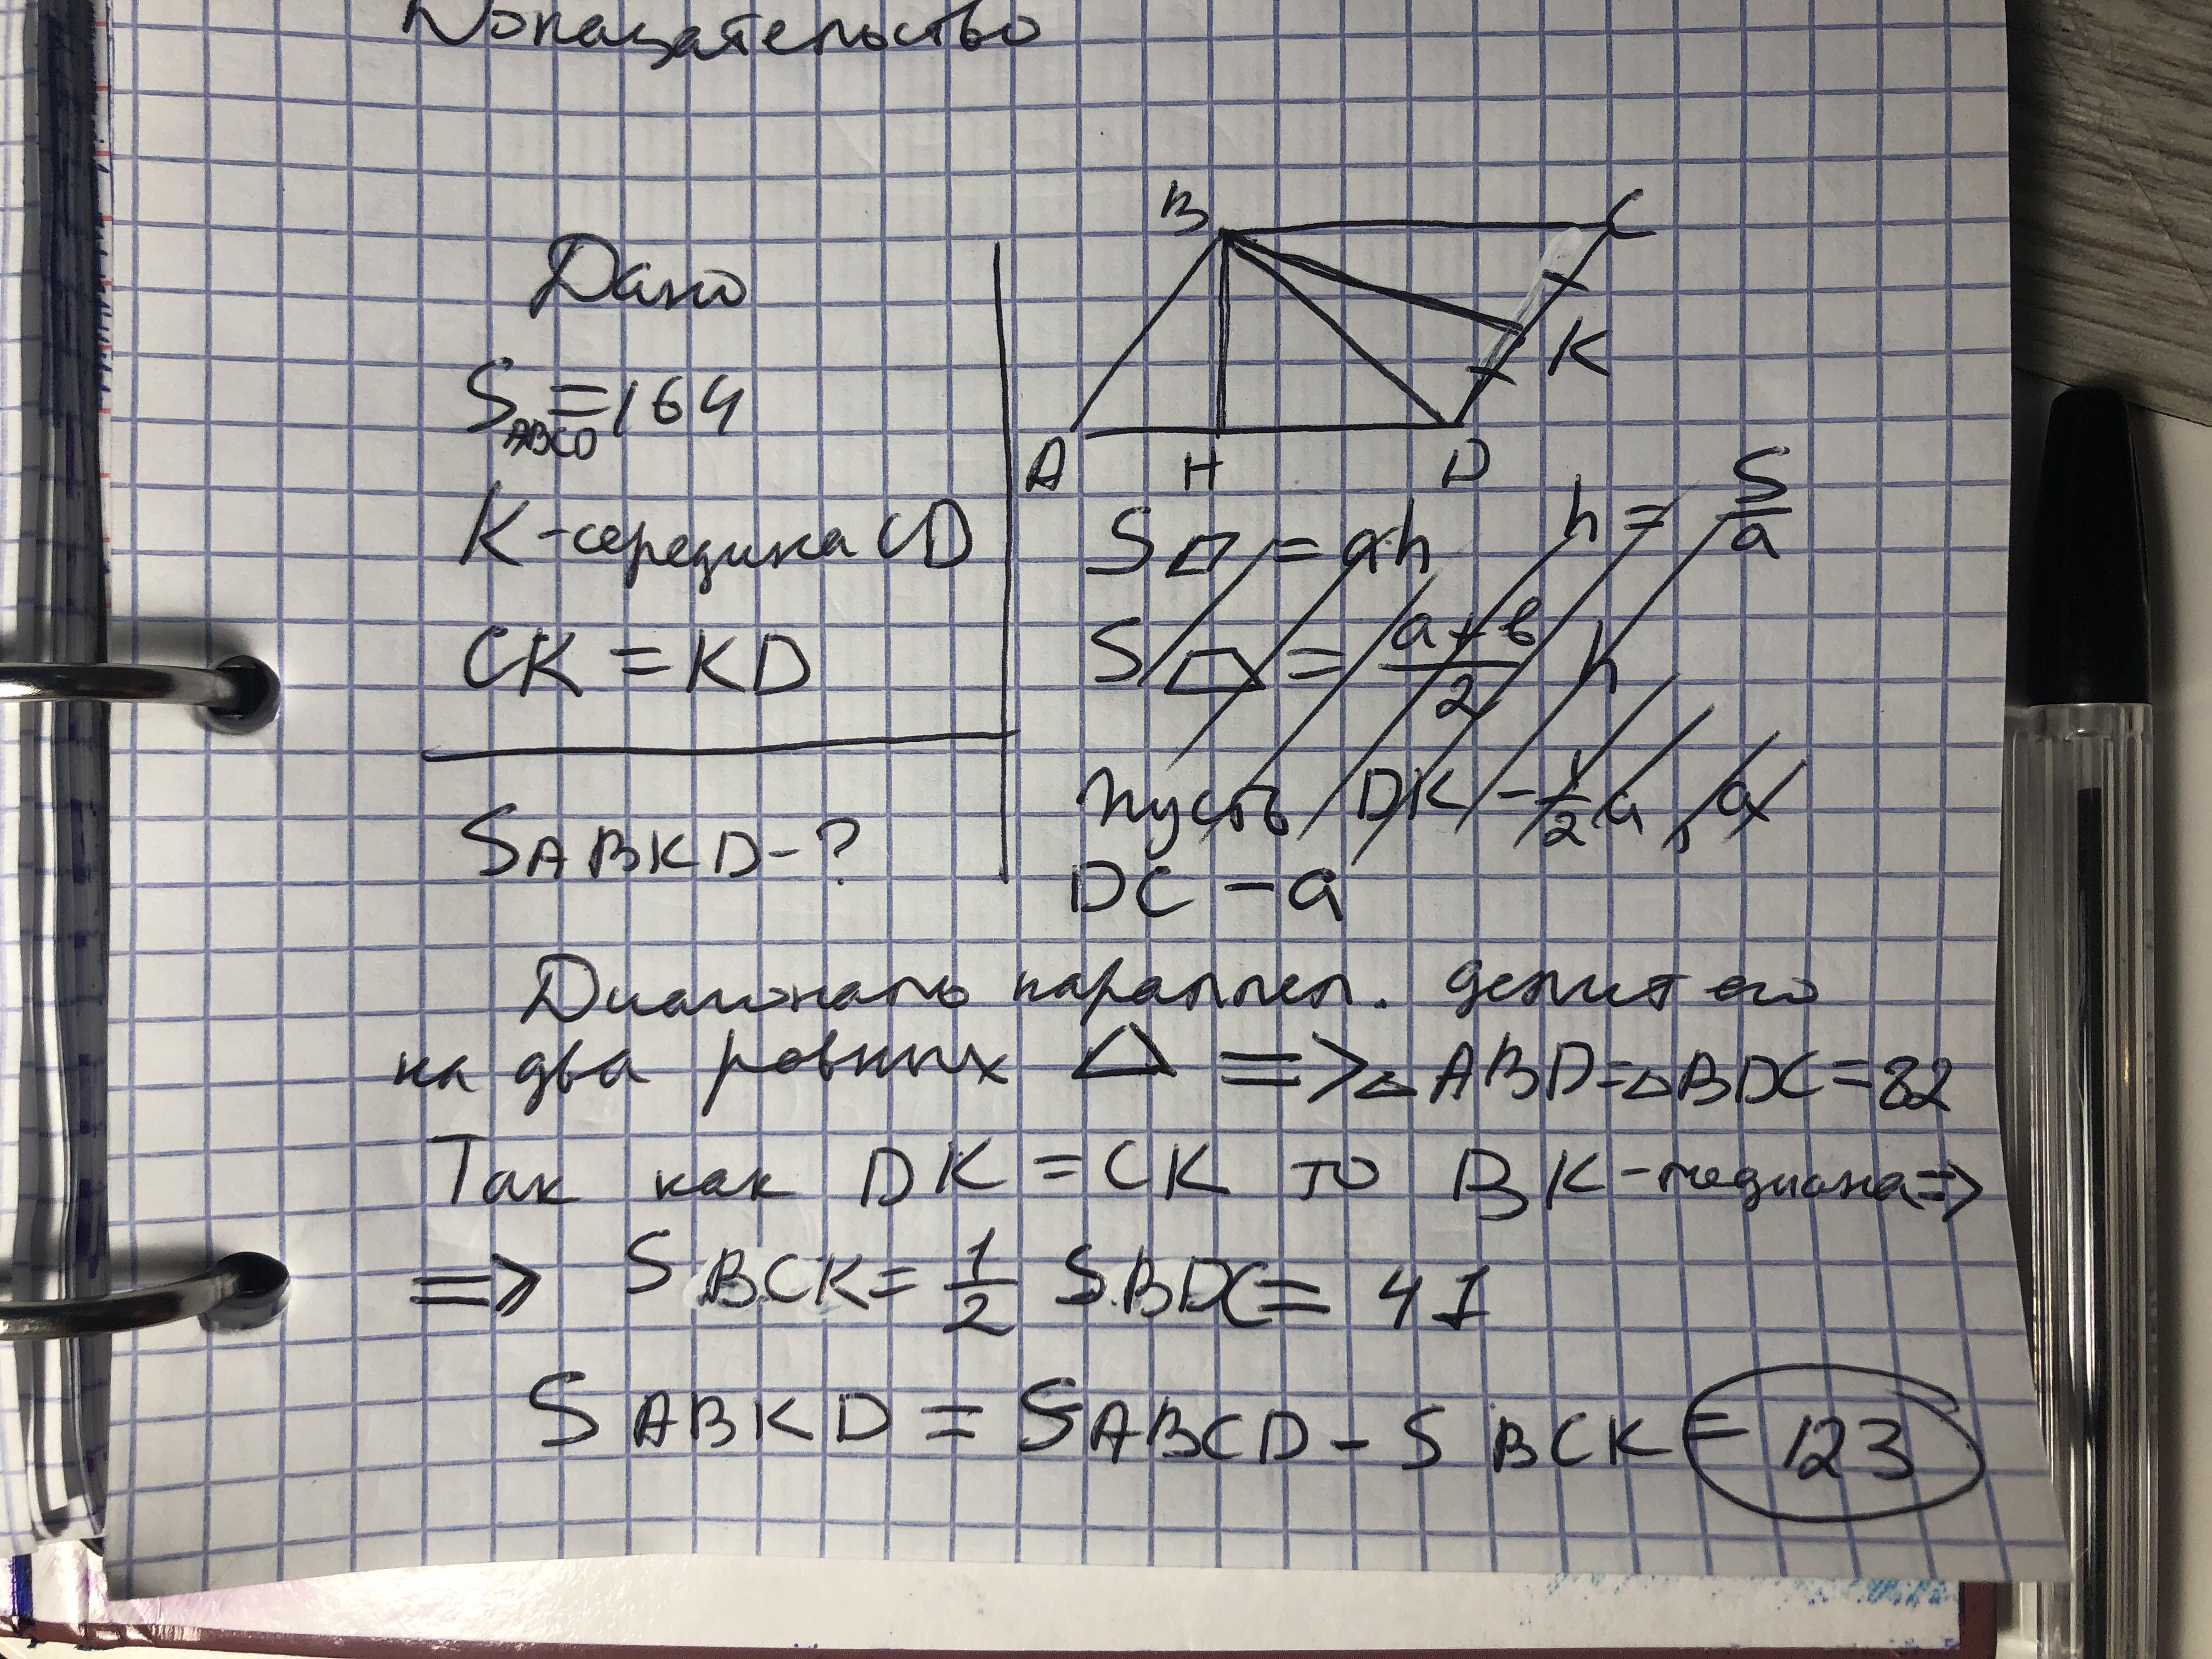 Доказательство
Дано
S ABCD = 164
K - середина CD
CK = KD
S ABKD - ?
B C
K
A H D
S▱ = ah h = S/a
S⏢ = (a+b)/2 h
Пусть DK - 1/2 a, a
DC - a
Диагональ параллел. делит его
на два ровных △ => △ABD = △BDC = 82
Так как DK = CK то BK - медиана =>
=> S BCK = 1/2 S BDC = 41
S ABKD = S ABCD - S BCK = 123